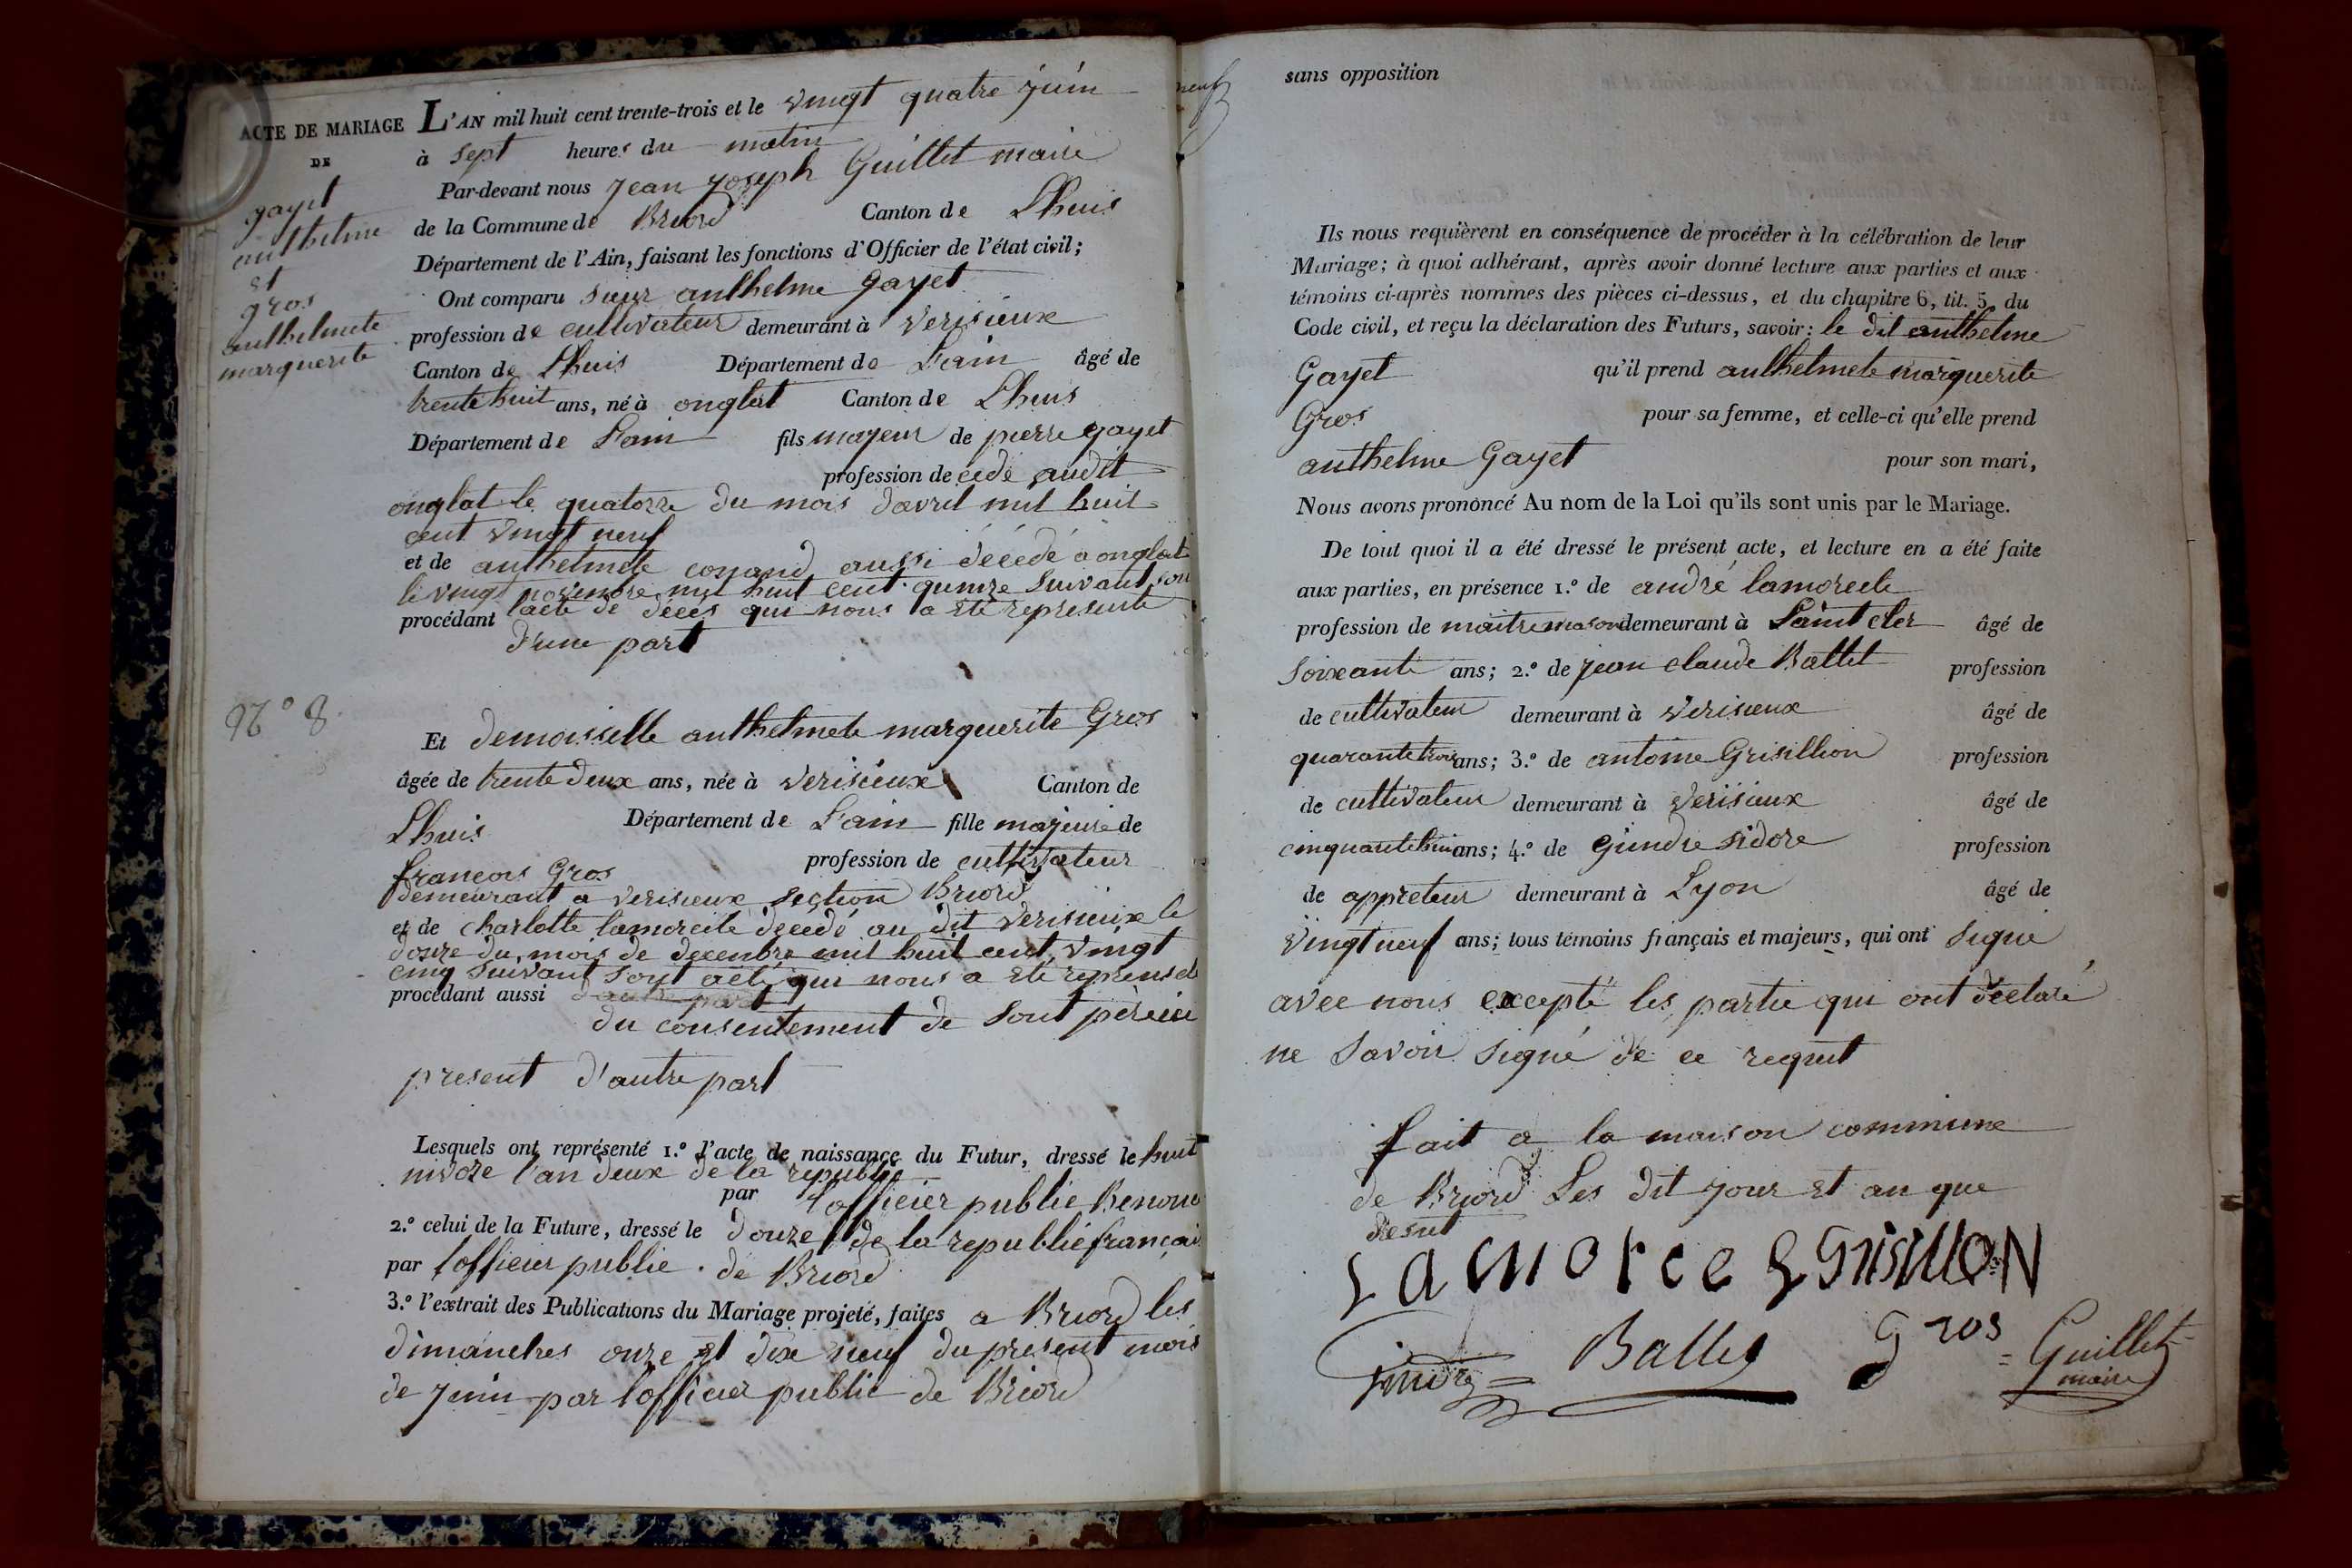 ACTE DE MARIAGE
DE
gayet
anthelme
et
gros
anthelmete
marguerite
N° 8.
L'AN mil huit cent trente-trois et le vingt quatre juin
à sept heures du matin
Par-devant nous jean joseph Guillet maire
de la Commune de Briord Canton de Lhuis
Département de l'Ain, faisant les fonctions d'Officier de l'état civil;
Ont comparu sieur anthelme gayet
profession de cultivateur demeurant à verisieux
Canton de Lhuis Département de L'ain âgé de
trente huit ans, né à onglat Canton de Lhuis
Département de L'ain fils majeur de pierre gayet
profession de cédé audit
onglat le quatorze du mois d'avril mil huit
cent vingt neuf
et de anthelmete conand aussi décédé a onglat
le vingt novembre mil huit cent quinze suivant son
procédant l'acte de déces qui nous a été representé
d'une part
Et demoiselle anthelmete marguerite Gros
âgée de trente deux ans, née à verisieux Canton de
Lhuis Département de L'ain fille majeure de
francois Gros profession de cultivateur
demeurant a verisieux section Briord
et de charlotte lamorcite décédé au dit verisieux le
douze du mois de decembre mil huit cent vingt
cinq suivant soyt acte, qui nous a été represneté
procédant aussi d'autre part
du consentement de sout père ici
present d'autre part
Lesquels ont représenté 1.° l'acte de naissance du Futur, dressé le huit
nivoze l'an deux de la republic
par l'officier public Benonc
2.° celui de la Future, dressé le douze de la republic françai
par l'officier public . de Briord
3.° l'extrait des Publications du Mariage projeté, faites a Briord les
dimanches onze et dix neuf du present mois
de juin par l'officier public de Briord
sans opposition
Ils nous requièrent en conséquence de procéder à la célébration de leur
Mariage; à quoi adhérant, après avoir donné lecture aux parties et aux
témoins ci-après nommes des pièces ci-dessus, et du chapitre 6, tit. 5, du
Code civil, et reçu la déclaration des Futurs, savoir: le dit anthelme
Gayet qu'il prend anthelmete marguerite
Gros pour sa femme, et celle-ci qu'elle prend
anthelme Gayet pour son mari,
Nous avons prononcé Au nom de la Loi qu'ils sont unis par le Mariage.
De tout quoi il a été dressé le présent acte, et lecture en a été faite
aux parties, en présence 1.° de andré lamorcete
profession de maitre mason demeurant à Saint cler âgé de
soixante ans; 2.° de jean claude Ballet profession
de cultivateur demeurant à verisieux âgé de
quarante trois ans; 3.° de antoine Grisillion profession
de cultivateur demeurant à verisieux âgé de
cinquante huit ans; 4.° de Gindre sidore profession
de appreteur demeurant à Lyon âgé de
vingt neuf ans; tous témoins français et majeurs, qui ont signé
avec nous excepté les partie qui ont déclaré
ne savoir signé de ce requit
fait a la maison commune
de Briord Les dit jour et an que
desut
Gros
Guillet
maire